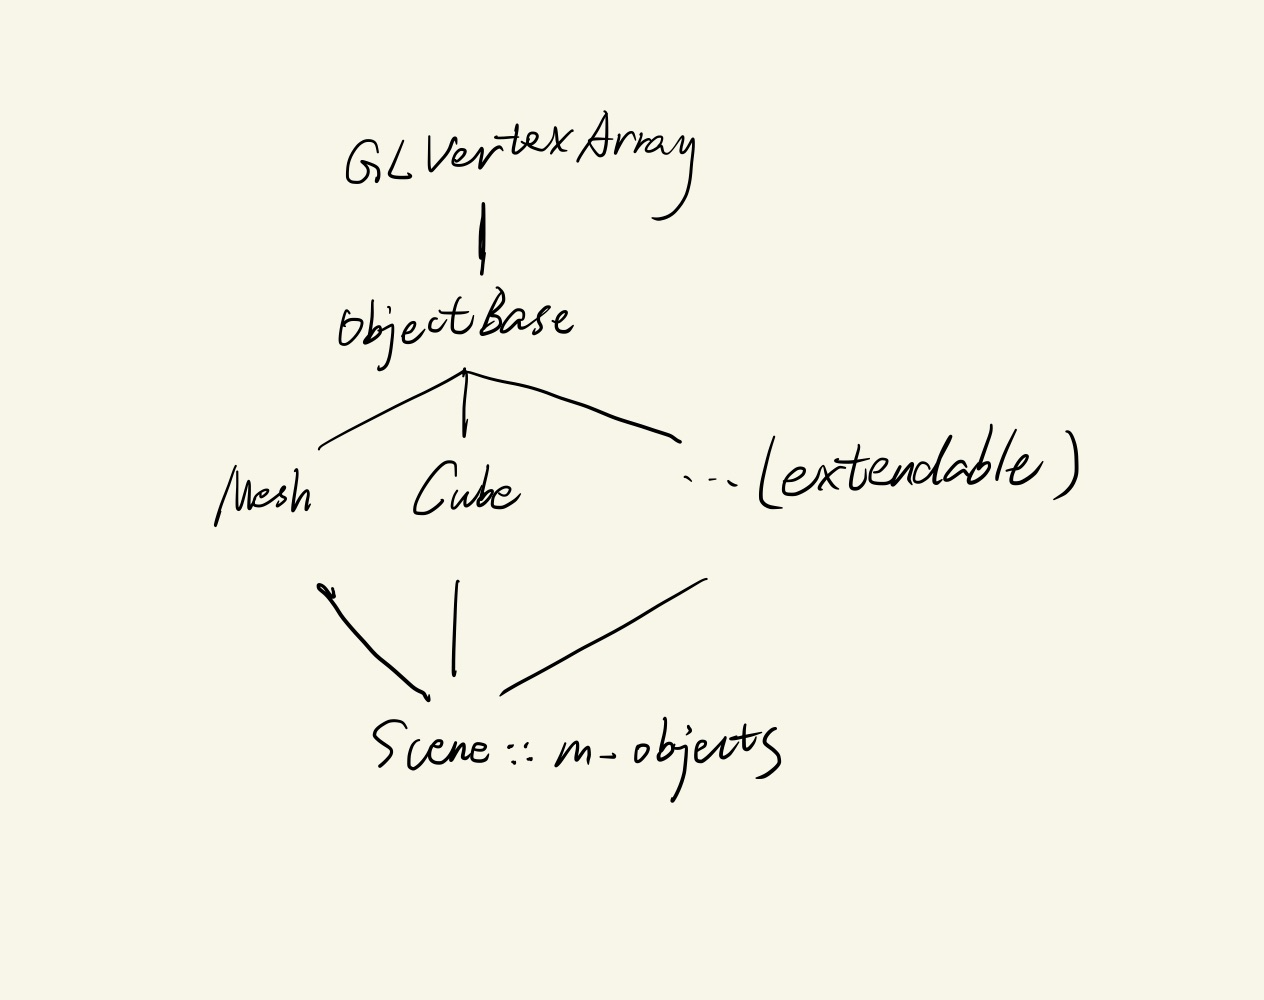 GLVertexArray
ObjectBase
Mesh Cube ... (extendable)
Scene::m_objects